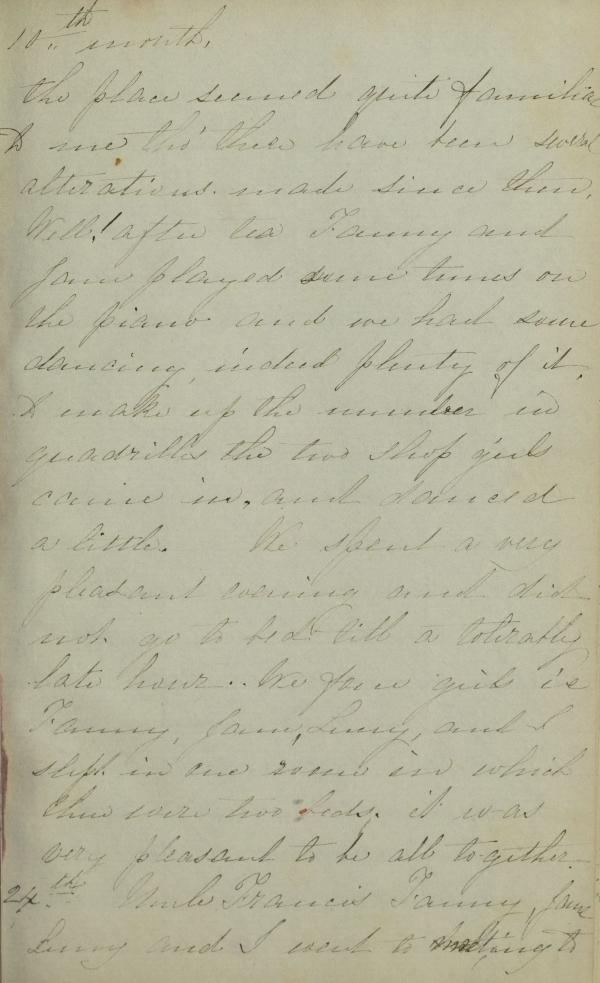 10th month.
the place seemed quite familiar
to me tho' there have been several
alterations made since then.
Well! after tea Fanny and
Jane played some tunes on
the piano and we had some
dancing, indeed plenty of it.
To make up the number in
quadrilles the two shop girls
came in, and danced
a little. We spent a very
pleasant evening and did
not go to bed till a tolerably
late hour. We four girls ie
Fanny, Jane, Lucy, and I
slept in one room in which
there were two beds. it was
very pleasant to be all together.
24th Uncle Francis Fanny, Jane
Lucy and I went to meeting to